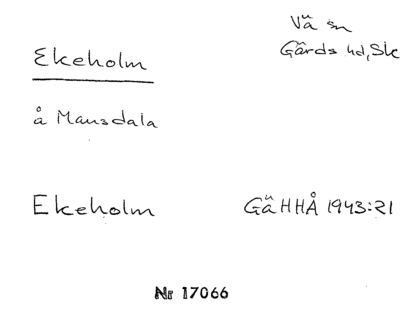 Vä sn
Ekeholm
Gärds hd, Sk
å Mansdala
Ekeholm
GäHHÅ 1943:21
Nr 17066